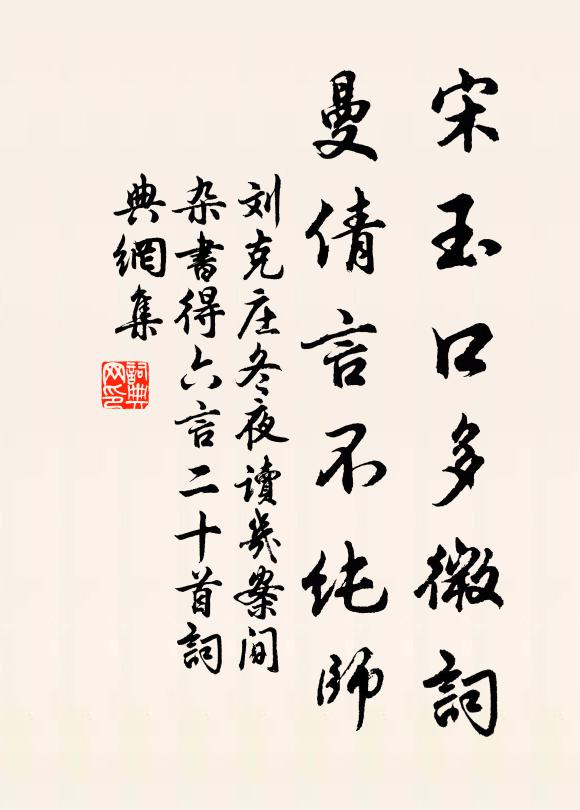 宋玉口多微詞
曼倩言不纯師
刘克庄冬夜讀幾案间
杂書得六言二十首詞
典網集
詞典
网印